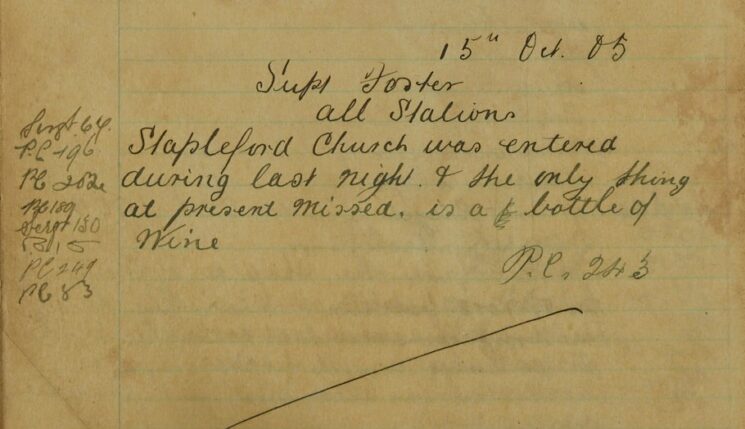 15th Oct. 05
Supt Foster
all Stations
Stapleford Church was entered
during last night. & the only thing
at present missed. is a bottle of
Wine
P.C. 243
Sergt. 64.
P.C 196
PC 202
PC 189
Sergt 150
PC 249
PC 83